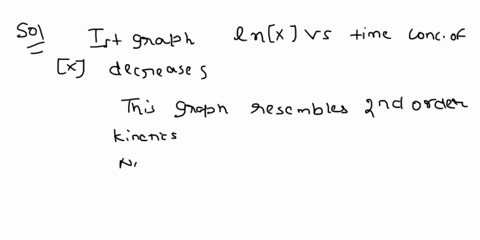 Sol
Ist graph ln[x] vs time conc. of
[x] decreases
This graph resembles 2nd order
kinetics
N